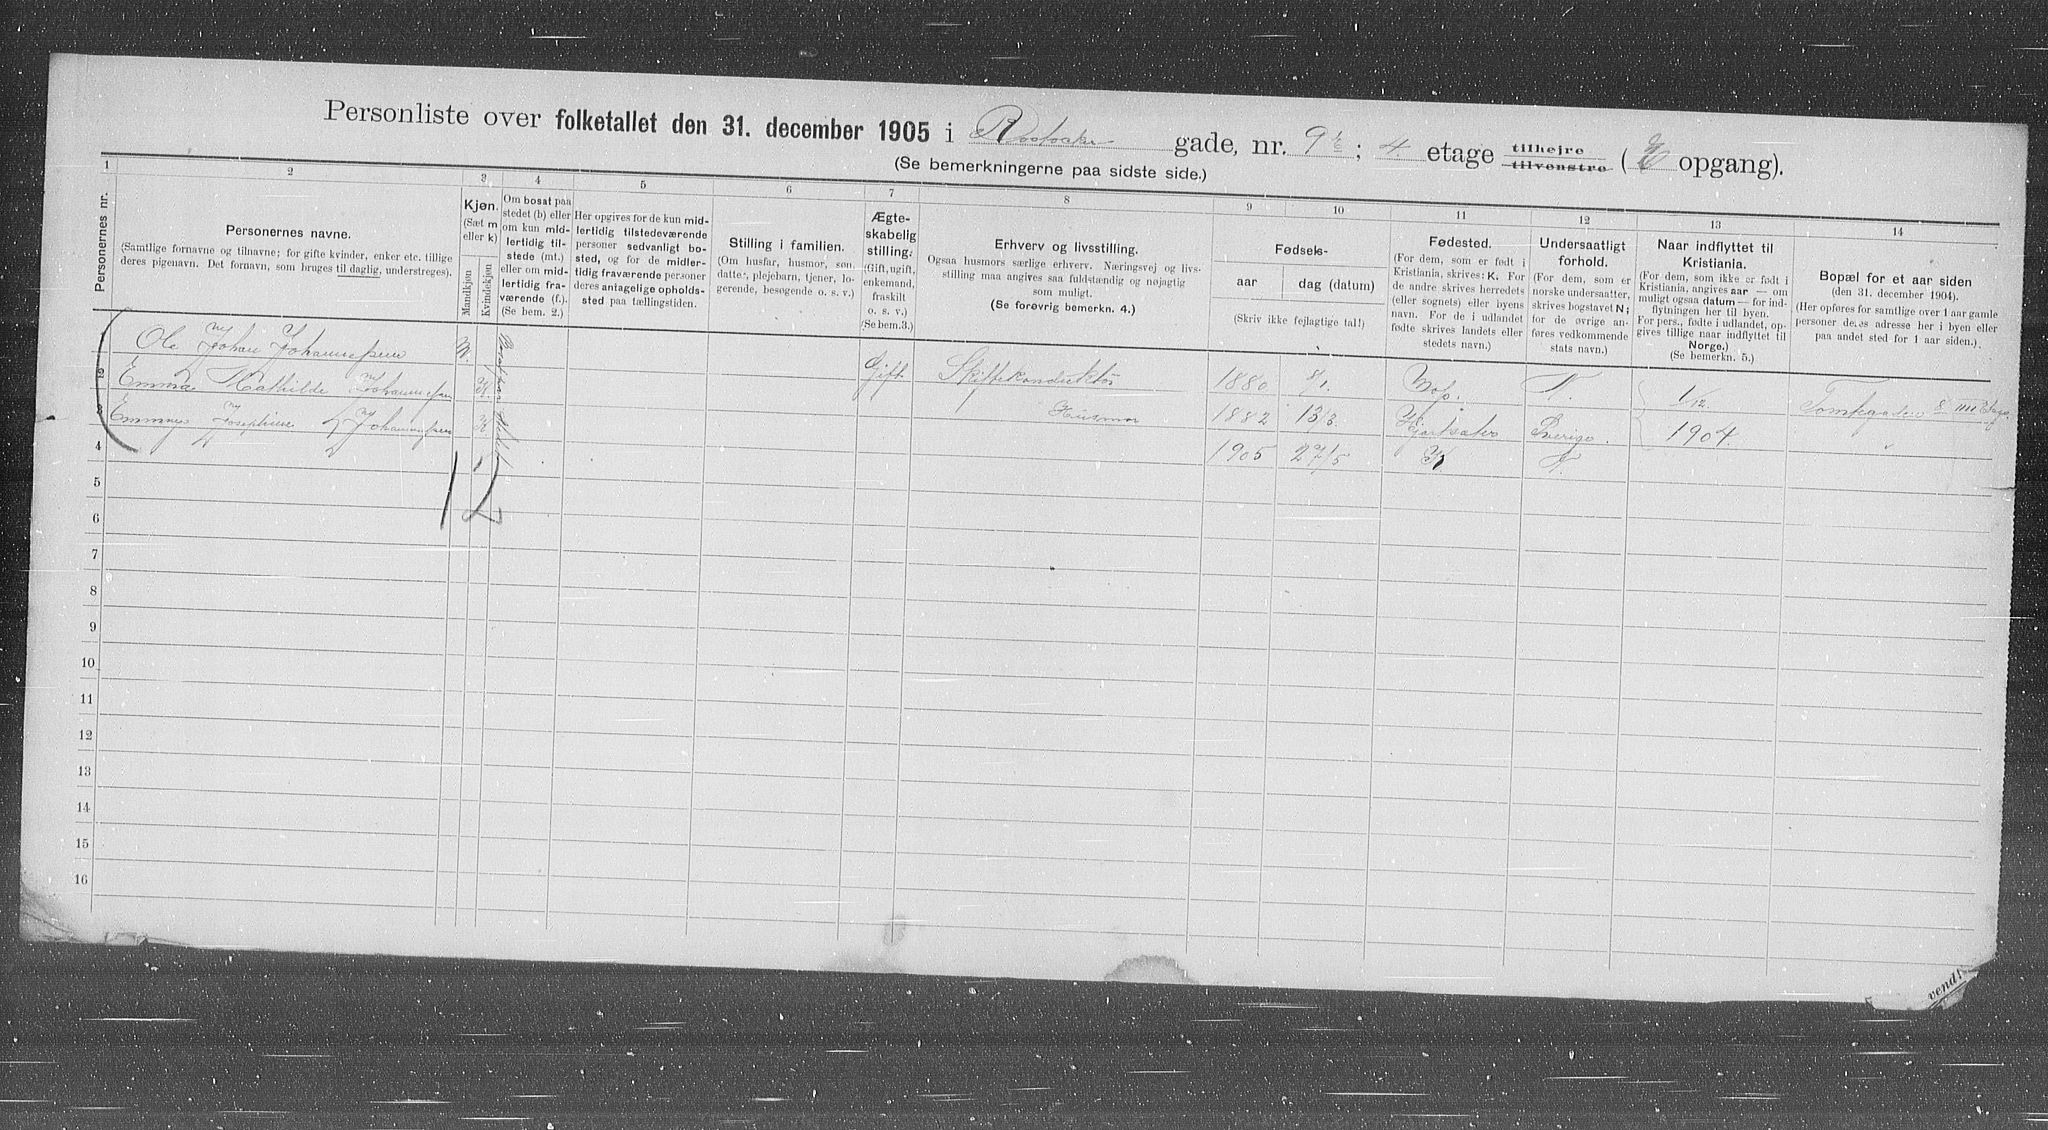 Personliste over folketallet den 31. december 1905 i Rostocker gade, nr. 9 ½; 4 etage tilhøjre tilvenstre ( opgang).
(Se bemerkningerne paa sidste side.)
1 2 3 4 5 6 7 8 9 10 11 12 13 14
Personernes nr.
Personernes navne.
(Samtlige fornavne og tilnavne; for gifte kvinder, enker etc. tillige
deres pigenavn. Det fornavn, som bruges til daglig, understreges).
Kjøn.
(Sæt m
eller k)
Mandkjøn
Kvindekjøn
Om bosat paa
stedet (b) eller
om kun mid-
lertidig til-
stede (mt.)
eller om mid-
lertidig fra-
værende (f.).
(Se bem. 2.)
Her opgives for de kun mid-
lertidig tilstedeværende
personer sedvanlig bo-
sted, og for de midler-
tidig fraværende personer
deres antagelige opholds-
sted paa tællingstiden.
Stilling i familien.
(Om husfar, husmor, søn,
datter, plejebarn, tjener, lo-
gerende, besøgende o. s. v.)
Ægte-
skabelig
stilling.
(Gift, ugift,
enkemand,
fraskilt
o. s. v.)
(Se bem. 3.)
Erhverv og livsstilling.
Ogsaa husmors særlige erhverv. Næringsvej og livs-
stilling maa angives saa fuldstændig og nøjagtig
som muligt.
(Se forøvrig bemerkn. 4.)
Fødsels-
aar dag (datum)
(Skriv ikke fejlagtige tal!)
Fødested.
(For dem, som er født i
Kristiania, skrives: K. For
de andre skrives herredets
(eller sognets) eller byens
navn. For de i udlandet
fødte skrives landets eller
stedets navn.)
Undersaatligt
forhold.
(For dem, som er
norske undersaatter,
skrives bogstavet N;
for de øvrige an-
føres vedkommende
stats navn.)
Naar indflyttet til
Kristiania.
(For dem, som ikke er født i
Kristiania, angives aar — om
muligt ogsaa datum — for ind-
flytningen her til byen.
For pers., fødte i udlandet, op-
gives tillige naar indflyttet til
Norge.)
(Se bemerkn. 5.)
Bopæl for et aar siden
(den 31. december 1904).
(Her opføres for samtlige over 1 aar gamle
personer deres adresse her i byen eller
paa andet sted for 1 aar siden.)
1 Ole Johan Johannesen M. Gift Skiftekonduktør 1880 8/1. N. 1/12.
2 Emma Mathilde Johannesen K. Husmor 1882 13/3. Sverige. 1904
3 Emmy Josephine Johannesen K 1905 27/5 K N.
4
12
5
6
7
8
9
10
11
12
13
14
15
16
vend!